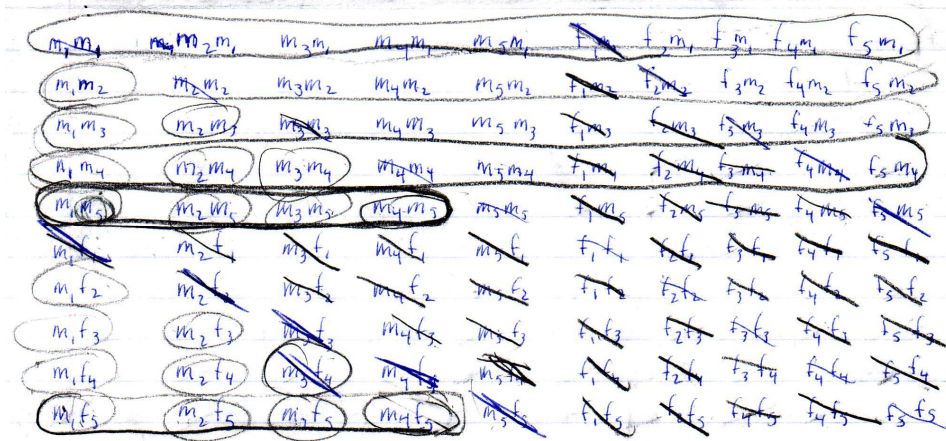 m₁m₁ m₂m₁ m₃m₁ m₄m₁ m₅m₁ f₁m₁ f₂m₁ f₃m₁ f₄m₁ f₅m₁
m₁m₂ m₂m₂ m₃m₂ m₄m₂ m₅m₂ f₁m₂ f₂m₂ f₃m₂ f₄m₂ f₅m₂
m₁m₃ m₂m₃ m₃m₃ m₄m₃ m₅m₃ f₁m₃ f₂m₃ f₃m₃ f₄m₃ f₅m₃
m₁m₄ m₂m₄ m₃m₄ m₄m₄ m₅m₄ f₁m₄ f₂m₄ f₃m₄ f₄m₄ f₅m₄
m₁m₅ m₂m₅ m₃m₅ m₄m₅ m₅m₅ f₁m₅ f₂m₅ f₃m₅ f₄m₅ f₅m₅
m₁f₁ m₂f₁ m₃f₁ m₄f₁ m₅f₁ f₁f₁ f₂f₁ f₃f₁ f₄f₁ f₅f₁
m₁f₂ m₂f₂ m₃f₂ m₄f₂ m₅f₂ f₁f₂ f₂f₂ f₃f₂ f₄f₂ f₅f₂
m₁f₃ m₂f₃ m₃f₃ m₄f₃ m₅f₃ f₁f₃ f₂f₃ f₃f₃ f₄f₃ f₅f₃
m₁f₄ m₂f₄ m₃f₄ m₄f₄ m₅f₄ f₁f₄ f₂f₄ f₃f₄ f₄f₄ f₅f₄
m₁f₅ m₂f₅ m₃f₅ m₄f₅ m₅f₅ f₁f₅ f₂f₅ f₄f₅ f₄f₅ f₅f₅